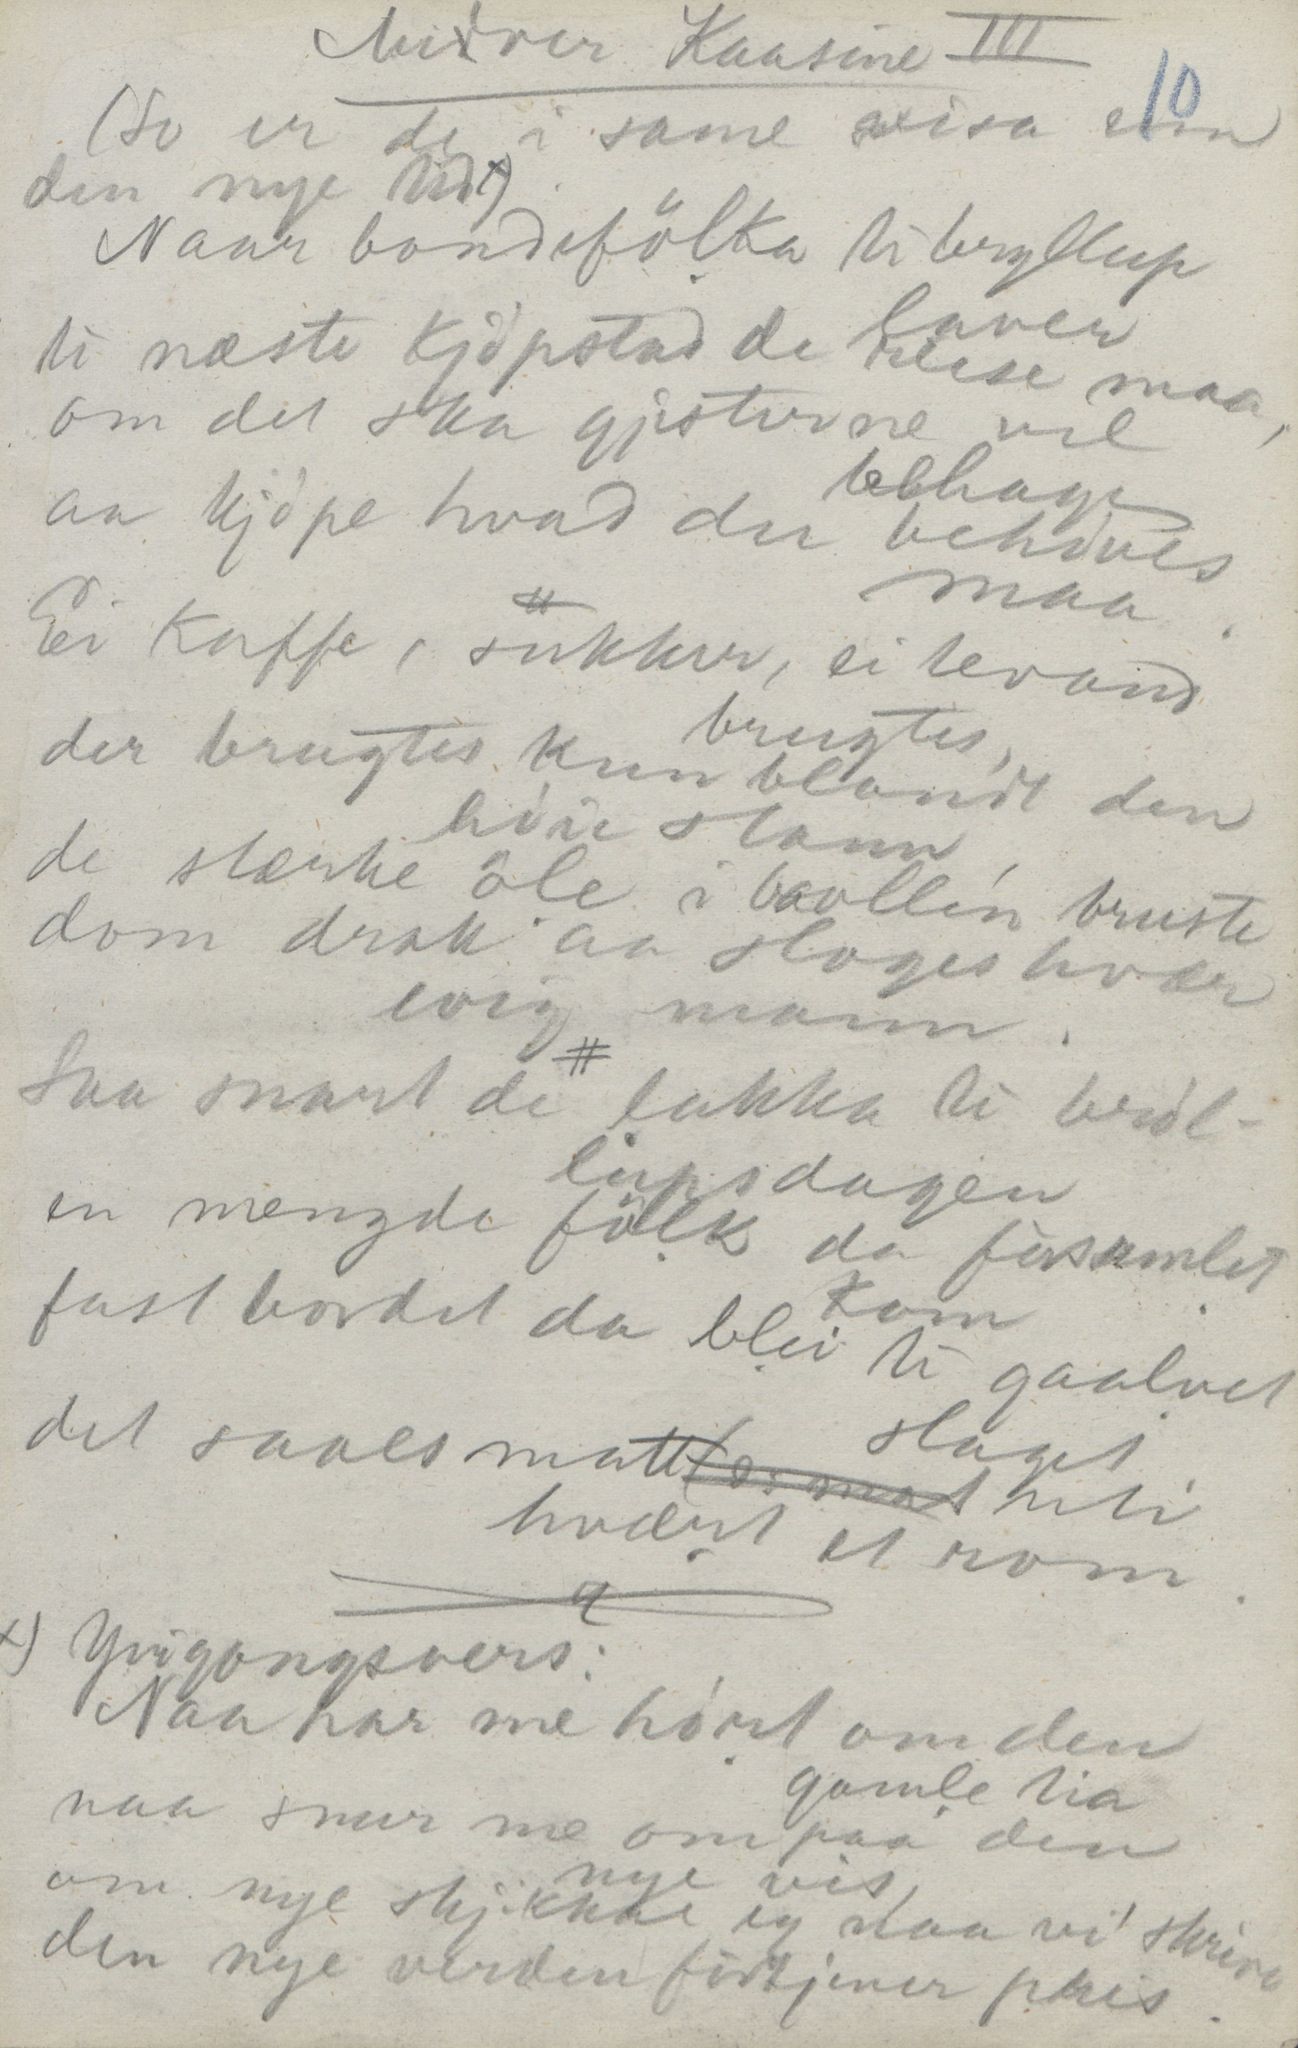 Meidver Kaasine III
10
(So er de i same visa um
den nye tid x)
Naar bondefölka ti bryllup
laver
ti næste kjöpstad de reise maa,
om det ska gjesterne vel
behage
aa kjöpe hvad der behöves
maa.
Ei kaffe, sukker, ei tevand
brugtes,
der brugtes kun blandt den
höie stann,
de stærke öle i baallen bruste
dom drak aa sloges hvær
evig mann.
Saa snart de # lakka ti bröl-
lupsdagen
en mengde fölk da forsamlet
kom
fast bordet da blei ti gaalvet
slaget.
det saales matt uti
hvært et rom.
x) Yvigangsvers:
Naa har me hört om den
gamle tia
naa snur me om paa den
nye vis,
om nye skjikkae eg naa vi' skrive
den nye verden förtjener pris.